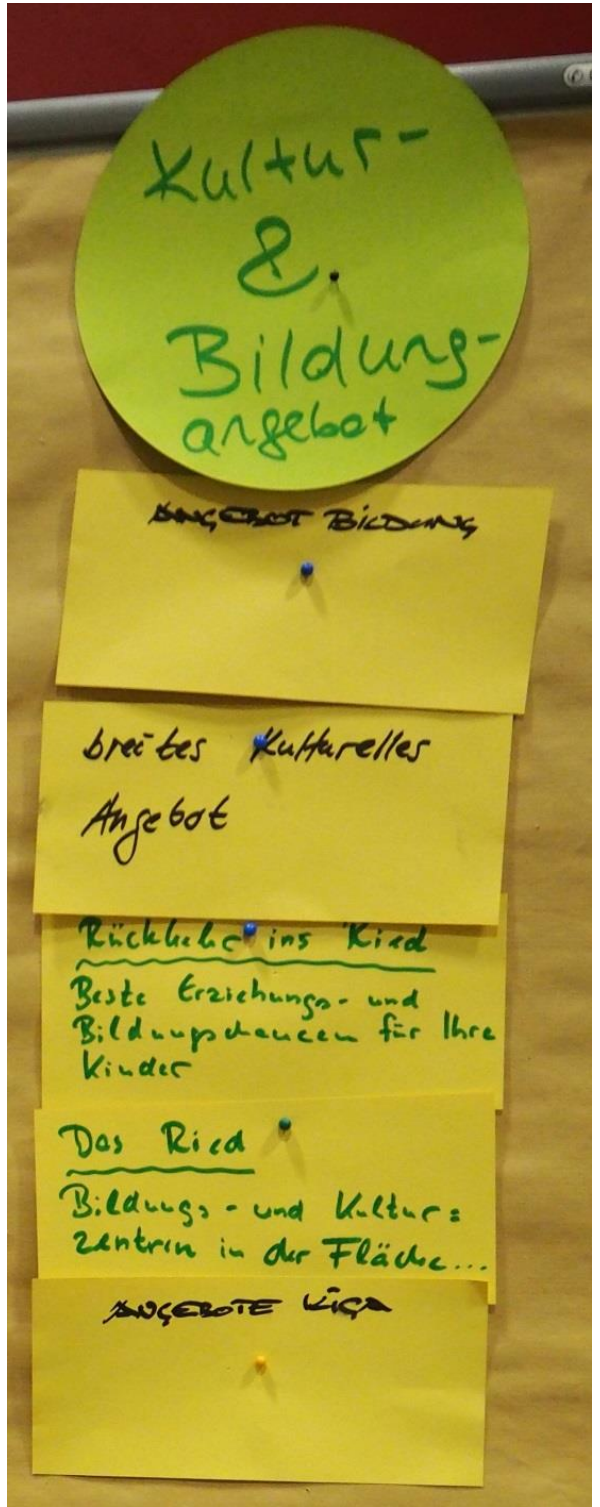 Kultur-
&
Bildung-
angebot
ANGEBOT BILDUNG
breites Kulturelles
Angebot
Rückkehr ins Ried
Beste Erziehungs- und
Bildungschancen für Ihre
Kinder
Das Ried
Bildungs- und Kultur=
zentren in der Fläche...
ANGEBOTE KIGA